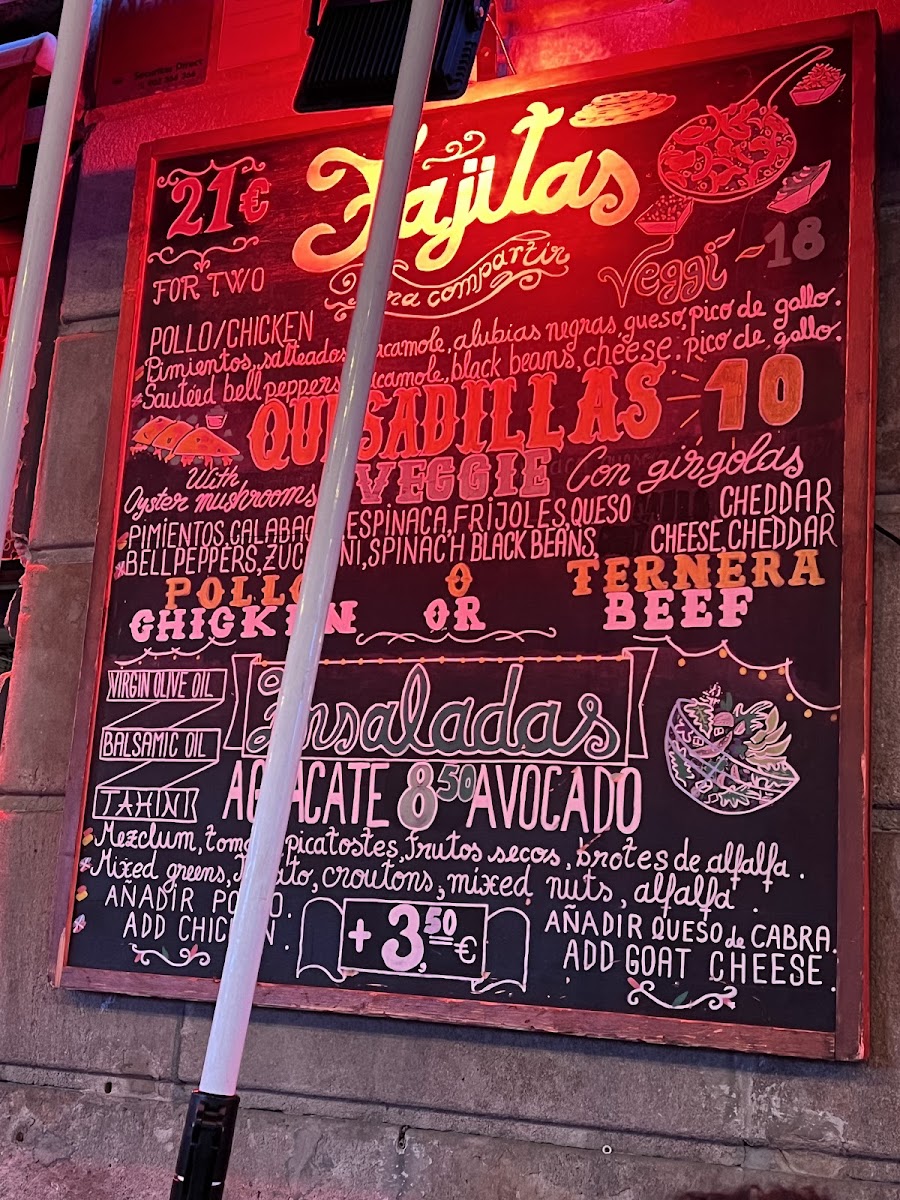 Securitas Direct
902 366 366
21€
FOR TWO
Fajitas
para compartir
Veggi - 18
POLLO/CHICKEN
Pimientos, salteados, guacamole, alubias negras, queso, pico de gallo.
Sauteed bell peppers, guacamole, black beans, cheese, pico de gallo.
QUESADILLAS - 10
With
Oyster mushrooms
VEGGIE
Con girgolas
PIMIENTOS, CALABACIN, ESPINACA, FRIJOLES, QUESO CHEDDAR
BELL PEPPERS, ZUCCHINI, SPINACH BLACK BEANS, CHEESE, CHEDDAR
POLLO O TERNERA
CHICKEN OR BEEF
VIRGIN OLIVE OIL
BALSAMIC OIL
TAHINI
Ensaladas
AGUACATE 8,50 AVOCADO
Mezclum, tomate, picatostes, frutos secos, brotes de alfalfa.
Mixed greens, Tomato, croutons, mixed nuts, alfalfa.
AÑADIR POLLO.
ADD CHICKEN.
+ 3,50 €
AÑADIR QUESO de CABRA.
ADD GOAT CHEESE.